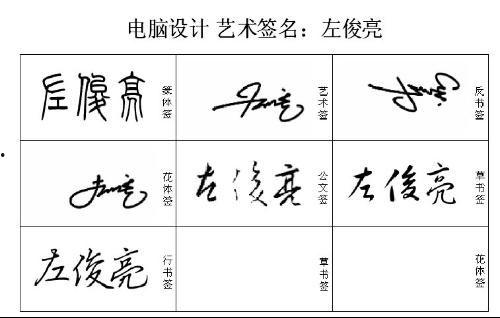 电脑设计 艺术签名：左俊亮
左俊亮 篆体签
左俊亮 艺术签
左俊亮 反书签
左俊亮 花体签
左俊亮 公文签
左俊亮 草书签
左俊亮 行书签
草书签
花体签